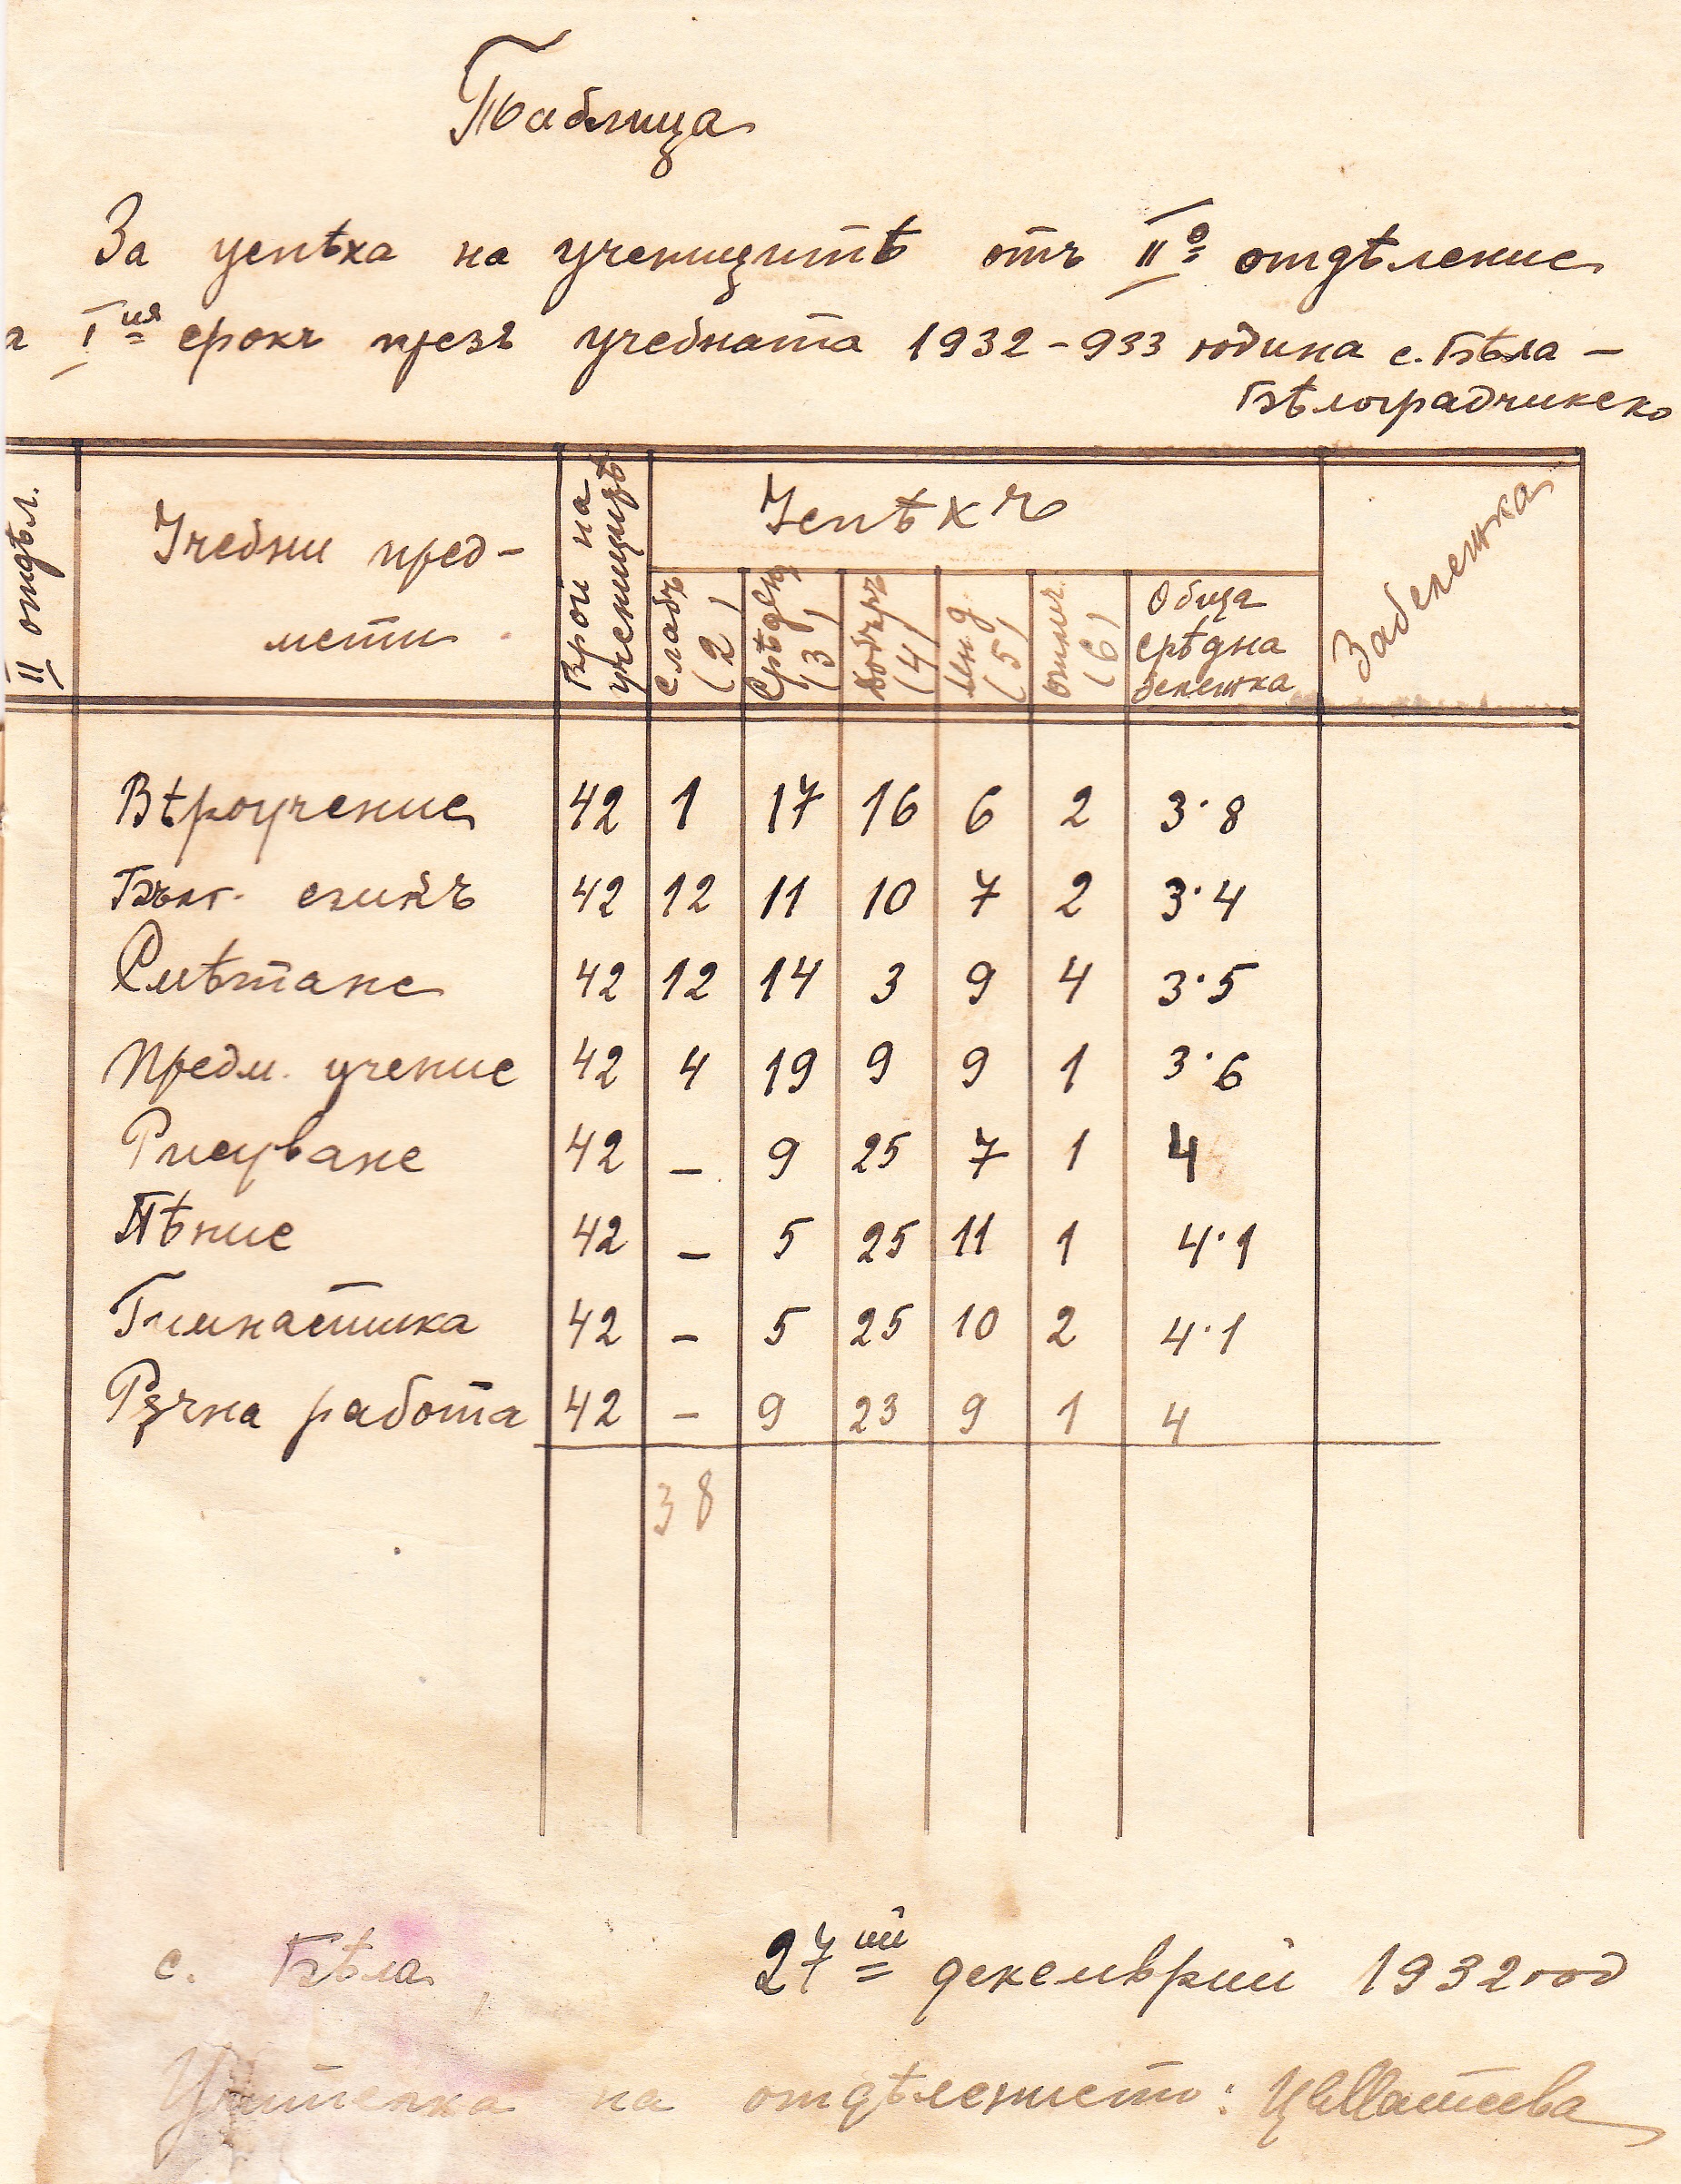 Таблица
За успѣха на ученицитѣ отъ II о отдѣление
I ия срокъ презъ учебната 1932-933 година с. Бѣла –
Бѣлоградчикско
II отдѣл.
Учебни пред-
мети
Брой на
ученицитѣ
Успѣхъ
слабъ
(2)
Срѣденъ
(3)
Добъръ
(4)
мн. д.
(5)
отлич.
(6)
Обща
срѣдна
бележка
Забележка
Вѣроучение 42 1 17 16 6 2 3·8
Бълг. езикъ 42 12 11 10 7 2 3·4
Смѣтане 42 12 14 3 9 4 3·5
Предм. учение 42 4 19 9 9 1 3·6
Рисуване 42 – 9 25 7 1 4
Пѣние 42 – 5 25 11 1 4·1
Гимнастика 42 – 5 25 10 2 4·1
Рѫчна работа 42 – 9 23 9 1 4
38
с. Бѣла, 27 ий декемврий 1932 год
Учителка на отдѣлението: Ц. Матеева